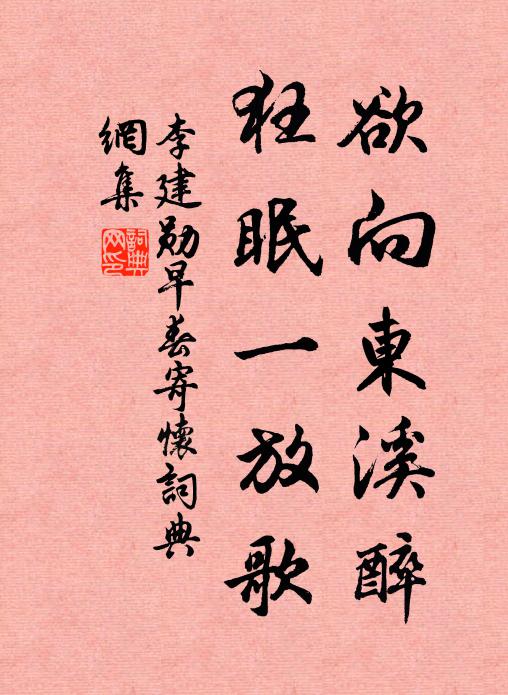 欲向東溪醉
狂眠一放歌
李建勛早春寄懷詞典
網集
詞典
网印